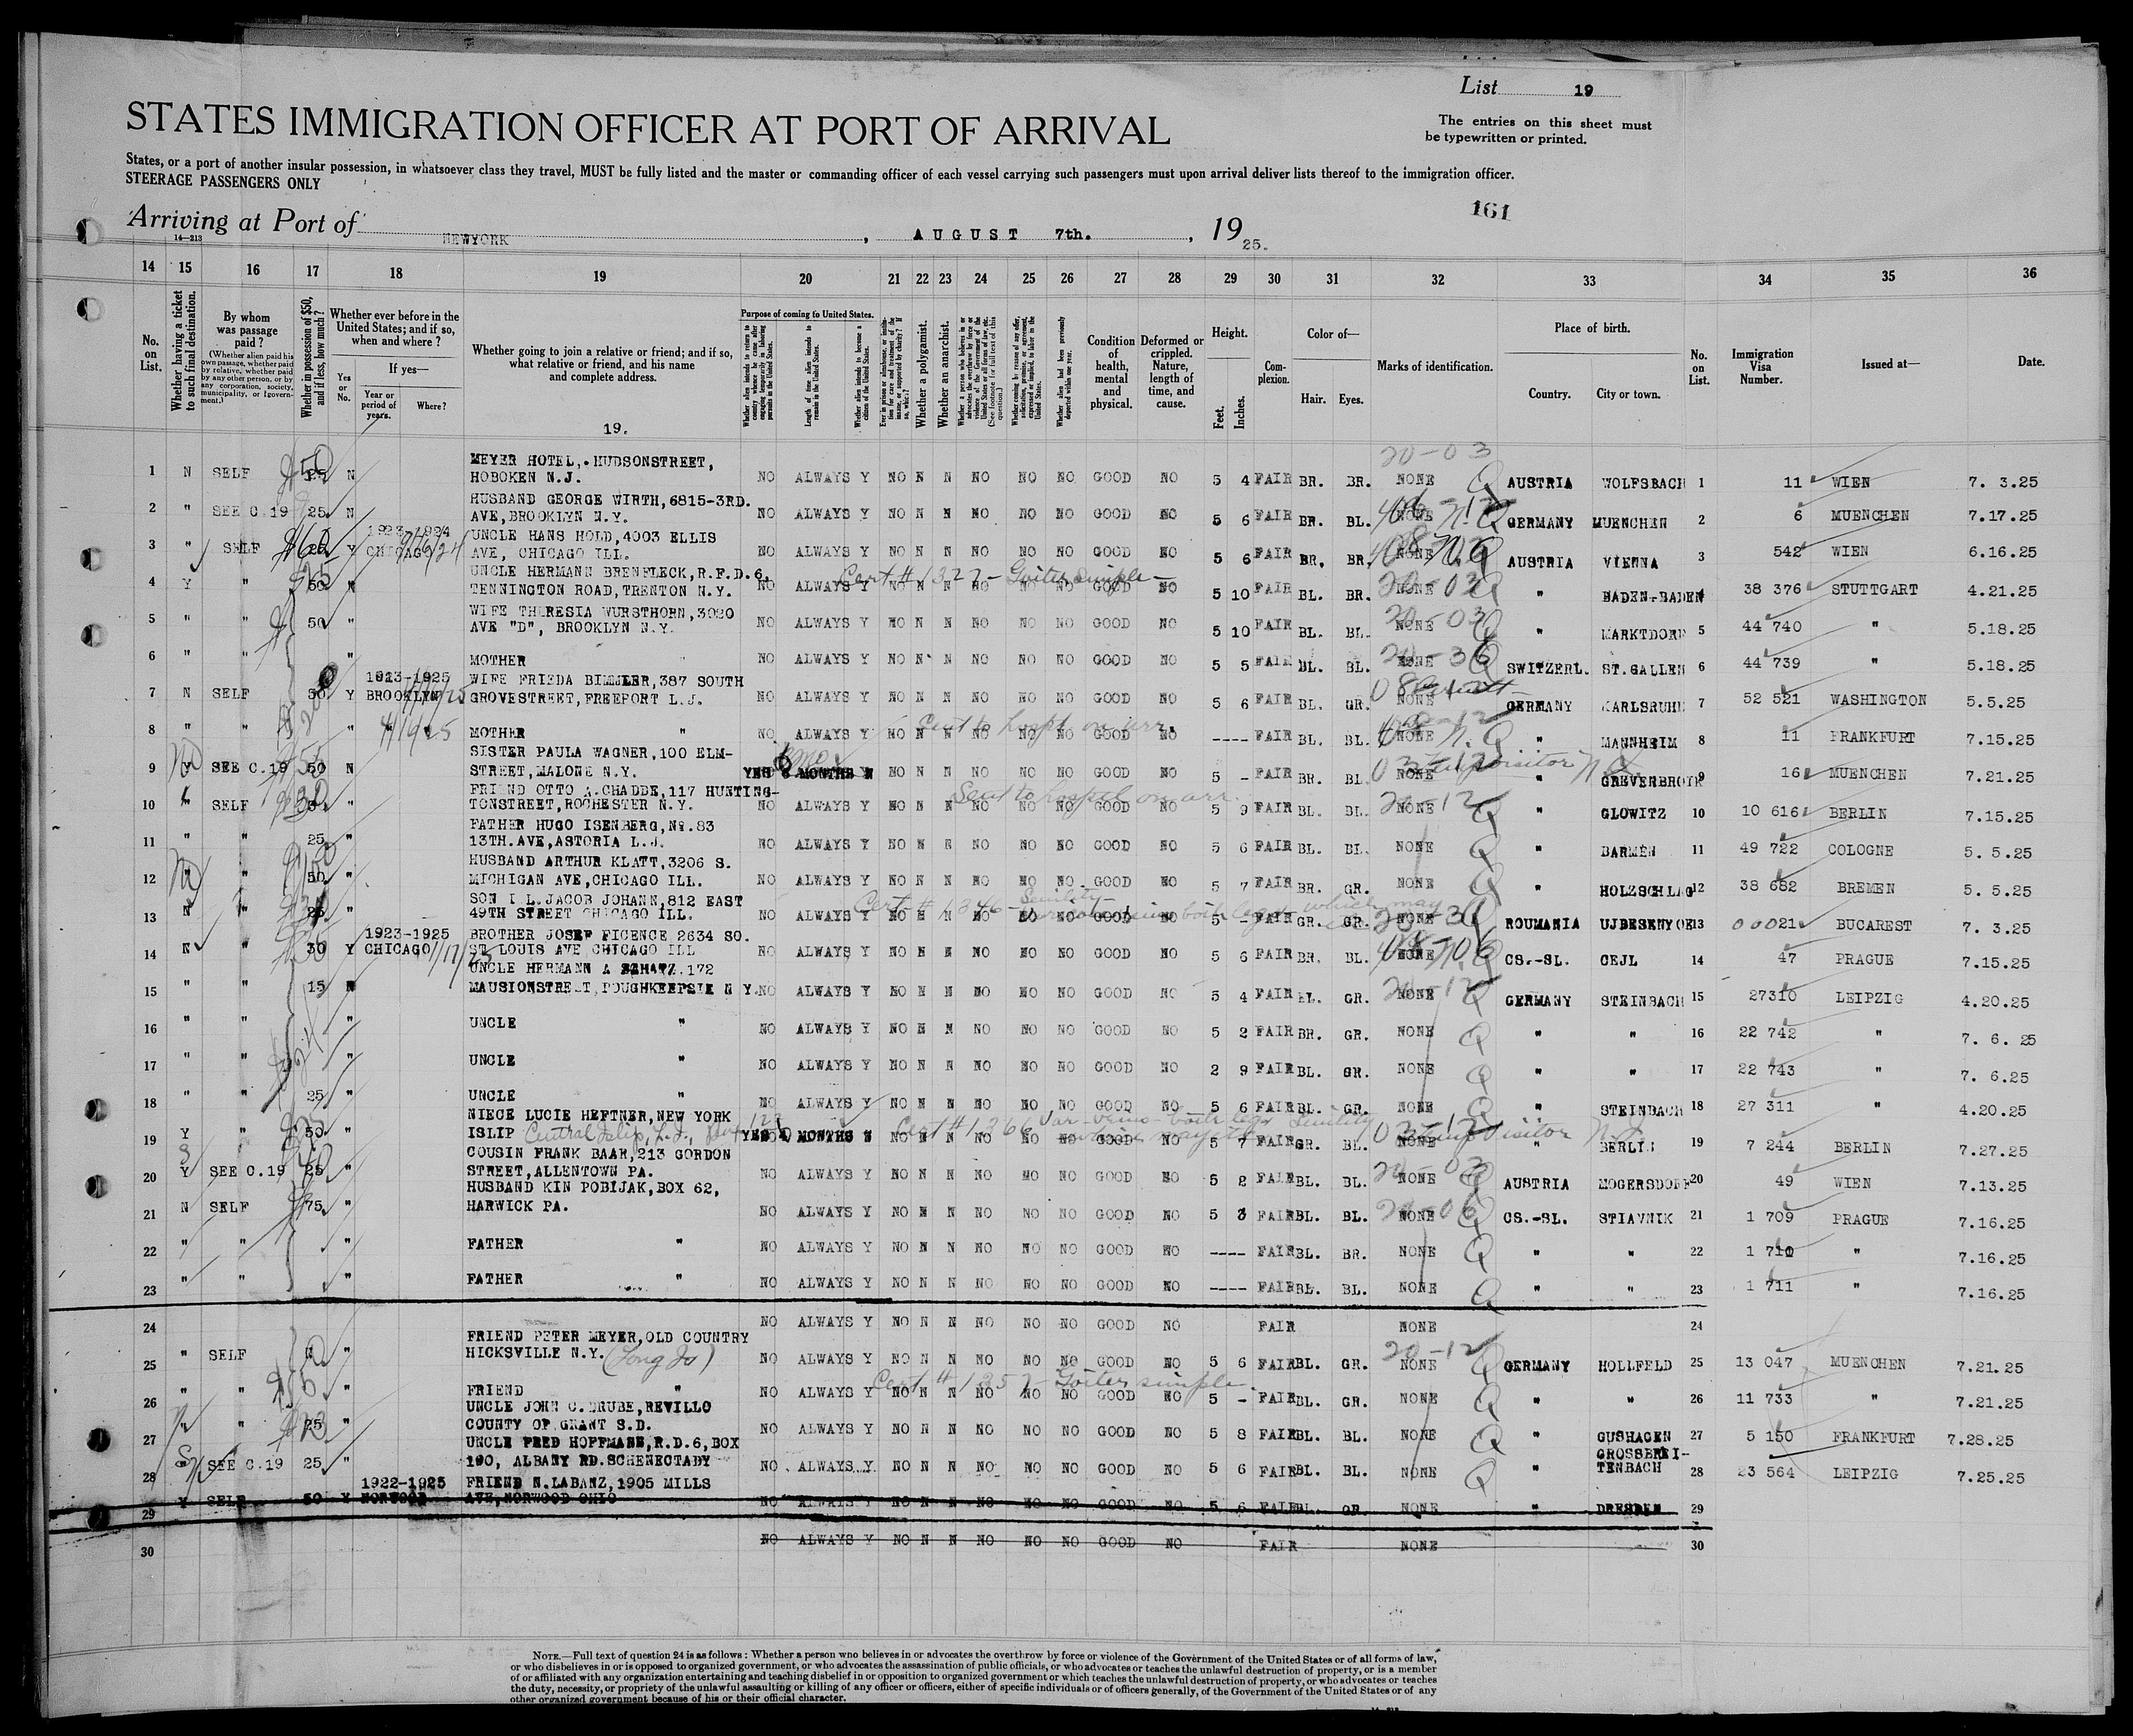 List 19
STATES IMMIGRATION OFFICER AT PORT OF ARRIVAL
The entries on this sheet must
be typewritten or printed.
States, or a port of another insular possession, in whatsoever class they travel, MUST be fully listed and the master or commanding officer of each vessel carrying such passengers must upon arrival deliver lists thereof to the immigration officer.
STEERAGE PASSENGERS ONLY
161
Arriving at Port of NEWYORK, AUGUST 7th., 1925.
14—213
14 15 16 17 18 19 20 21 22 23 24 25 26 27 28 29 30 31 32 33 34 35 36
No. on List.
Whether having a ticket to such final destination.
By whom was passage paid?
(Whether alien paid his own passage, whether paid by relative, whether paid by any other person, or by any corporation, society, municipality, or government.)
Whether in possession of $50, and if less, how much?
Whether ever before in the United States; and if so, when and where?
Yes or No.
If yes—
Year or period of years.
Where?
Whether going to join a relative or friend; and if so, what relative or friend, and his name and complete address.
19.
Purpose of coming to United States.
Length of time alien intends to remain in the United States.
Whether a polygamist.
Whether an anarchist.
Condition of health, mental and physical.
Deformed or crippled. Nature, length of time, and cause.
Height.
Feet. Inches.
Complexion.
Color of—
Hair. Eyes.
Marks of identification.
Place of birth.
Country. City or town.
No. on List.
Immigration Visa Number.
Issued at—
Date.
1 N SELF 25 N MEYER HOTEL,.HUDSONSTREET, HOBOKEN N.J. NO ALWAYS Y NO N N NO NO NO GOOD NO 5 4 FAIR BR. BR. NONE 20-03 AUSTRIA WOLFSBACH 1 11 WIEN 7. 3.25
2 " SEE C.19 25 N HUSBAND GEORGE WIRTH,6815-3RD. AVE,BROOKLYN N.Y. NO ALWAYS Y NO N N NO NO NO GOOD NO 5 6 FAIR BR. BL. NONE GERMANY MUENCHEN 2 6 MUENCHEN 7.17.25
3 " SELF $60 Y 1923-1924 CHICAGO UNCLE HANS HOLD,4003 ELLIS AVE, CHICAGO ILL. NO ALWAYS Y NO N N NO NO NO GOOD NO 5 6 FAIR BR. BR. NONE AUSTRIA VIENNA 3 542 WIEN 6.16.25
4 Y " 50 N UNCLE HERMANN BRENFLECK,R.F.D.6, TENNINGTON ROAD,TRENTON N.Y. NO ALWAYS Y NO N N NO NO NO GOOD NO Cert # 1327 - Goiter simple - 5 10 FAIR BL. BR. NONE 20-03 " BADEN-BADEN 4 38 376 STUTTGART 4.21.25
5 " " 50 " WIFE THERESIA WURSTHORN,3020 AVE "D", BROOKLYN N.Y. NO ALWAYS Y NO N N NO NO NO GOOD NO 5 10 FAIR BL. BL. NONE 20-03 " MARKTDORF 5 44 740 " 5.18.25
6 " " " MOTHER " NO ALWAYS Y NO N N NO NO NO GOOD NO 5 5 FAIR BL. BL. NONE 20-36 SWITZERL. ST.GALLEN 6 44 739 " 5.18.25
7 N SELF 50 Y 1923-1925 BROOKLYN WIFE FRIEDA BIMMLER,387 SOUTH GROVESTREET,FREEPORT L.J. NO ALWAYS Y NO N N NO NO NO GOOD NO 5 6 FAIR BL. GR. NONE GERMANY KARLSRUHE 7 52 521 WASHINGTON 5.5.25
8 " " " MOTHER " NO ALWAYS Y NO N N NO NO NO GOOD NO Sent to hospt on arr. ---- FAIR BL. BL. NONE " MANNHEIM 8 11 FRANKFURT 7.15.25
9 Y SEE C.19 50 N SISTER PAULA WAGNER,100 ELM-STREET,MALONE N.Y. YES 6 MONTHS N NO N N NO NO NO GOOD NO 5 - FAIR BR. BL. NONE Temp visitor " GREVENBROIR 9 16 MUENCHEN 7.21.25
10 " SELF " FRIEND OTTO A.CHADDE,117 HUNTING-TONSTREET,ROCHESTER N.Y. NO ALWAYS Y NO N N NO NO NO GOOD NO Sent to hospt on arr. 5 9 FAIR BL. BL. NONE 20-12 " GLOWITZ 10 10 616 BERLIN 7.15.25
11 " " 25 " FATHER HUGO ISENBERG,No.83 13TH.AVE,ASTORIA L.J. NO ALWAYS Y NO N N NO NO NO GOOD NO 5 6 FAIR BL. BL. NONE " BARMEN 11 49 722 COLOGNE 5. 5.25
12 " " 50 " HUSBAND ARTHUR KLATT,3206 S. MICHIGAN AVE,CHICAGO ILL. NO ALWAYS Y NO N N NO NO NO GOOD NO 5 7 FAIR BR. GR. NONE " HOLZSCHLAG 12 38 682 BREMEN 5. 5.25
13 N " 25 " SON I L.JACOB JOHANN,812 EAST 49TH STREET CHICAGO ILL. NO ALWAYS Y NO N N NO NO NO GOOD NO Cert # 1346 - Senility 5 - FAIR GR. GR. NONE ROUMANIA UJBESENYOE 13 00021 BUCAREST 7. 3.25
14 N " 30 Y 1923-1925 CHICAGO BROTHER JOSEF FICENCE 2634 SO. ST LOUIS AVE CHICAGO ILL NO ALWAYS Y NO N N NO NO NO GOOD NO 5 6 FAIR BR. BL. NONE CS.-SL. CEJL 14 47 PRAGUE 7.15.25
15 " " 15 N UNCLE HERMANN A SCHATZ.172 MAUSIONSTREET,POUGHKEEPSIE N Y. NO ALWAYS Y NO N N NO NO NO GOOD NO 5 4 FAIR BL. GR. NONE 20-12 GERMANY STEINBACH 15 27310 LEIPZIG 4.20.25
16 " " " UNCLE " NO ALWAYS Y NO N N NO NO NO GOOD NO 5 2 FAIR BR. GR. NONE " " 16 22 742 " 7. 6. 25
17 " " " UNCLE " NO ALWAYS Y NO N N NO NO NO GOOD NO 2 9 FAIR BL. GR. NONE " " 17 22 743 " 7. 6.25
18 " " 25 " UNCLE " NO ALWAYS Y NO N N NO NO NO GOOD NO 5 6 FAIR BL. GR. NONE " STEINBACH 18 27 311 " 4.20.25
19 Y " 50 " NIECE LUCIE HEFTNER,NEW YORK ISLIP Central Islip, L.I., YES MONTHS N NO N N NO NO NO GOOD NO Cert # 1266 Senility 5 7 FAIR GR. BL. NONE Temp Visitor " BERLIN 19 7 244 BERLIN 7.27.25
20 Y SEE C.19 25 " COUSIN FRANK BAAR,213 GORDON STREET,ALLENTOWN PA. NO ALWAYS Y NO N N NO NO NO GOOD NO 5 2 FAIR BL. BL. NONE 20-03 AUSTRIA MOGERSDORF 20 49 WIEN 7.13.25
21 N SELF 75 " HUSBAND KIN POBIJAK,BOX 62, HARWICK PA. NO ALWAYS Y NO N N NO NO NO GOOD NO 5 3 FAIR BL. BL. NONE 20-06 CS.-SL. STIAVNIK 21 1 709 PRAGUE 7.16.25
22 " " " FATHER " NO ALWAYS Y NO N N NO NO NO GOOD NO ---- FAIR BL. BR. NONE " " 22 1 710 " 7.16.25
23 " " " FATHER " NO ALWAYS Y NO N N NO NO NO GOOD NO ---- FAIR BL. BL. NONE " " 23 1 711 " 7.16.25
24 NO ALWAYS Y NO N N NO NO NO GOOD NO FAIR NONE 24
25 " SELF " FRIEND PETER MEYER,OLD COUNTRY HICKSVILLE N.Y. (Long Is) NO ALWAYS Y NO N N NO NO NO GOOD NO 5 6 FAIR BL. GR. NONE 20-12 GERMANY HOLLFELD 25 13 047 MUENCHEN 7.21.25
26 " " " FRIEND " NO ALWAYS Y NO N N NO NO NO GOOD NO Cert # 1257 - Goiter simple 5 - FAIR BL. GR. NONE " " 26 11 733 " 7.21.25
27 " " 25 " UNCLE JOHN C.DRUBE,REVILLO COUNTY OF GRANT S.D. NO ALWAYS Y NO N N NO NO NO GOOD NO 5 8 FAIR BL. BL. NONE " GUSHAGEN 27 5 150 FRANKFURT 7.28.25
28 SEE C.19 25 " UNCLE FRED HOFFMANN,R.D.6,BOX 190, ALBANY RD.SCHENECTADY NO ALWAYS Y NO N N NO NO NO GOOD NO 5 6 FAIR BL. BL. NONE " GROSSBREI-TENBACH 28 23 564 LEIPZIG 7.25.25
29 Y SELF 50 Y 1922-1925 NORWOOD FRIEND N.LABANZ,1905 MILLS AVE,NORWOOD OHIO NO ALWAYS Y NO N N NO NO NO GOOD NO 5 6 FAIR BL. GR. NONE " DRESDEN 29
30 NO ALWAYS Y NO N N NO NO NO GOOD NO FAIR NONE 30
NOTE.—Full text of question 24 is as follows: Whether a person who believes in or advocates the overthrow by force or violence of the Government of the United States or of all forms of law,
or who disbelieves in or is opposed to organized government, or who advocates the assassination of public officials, or who advocates or teaches the unlawful destruction of property, or is a member
of or affiliated with any organization entertaining and teaching disbelief in or opposition to organized government or which teaches the unlawful destruction of property, or who advocates or teaches
the duty, necessity, or propriety of the unlawful assaulting or killing of any officer or officers, either of specific individuals or of officers generally, of the Government of the United States or of any
other organized government because of his or their official character.